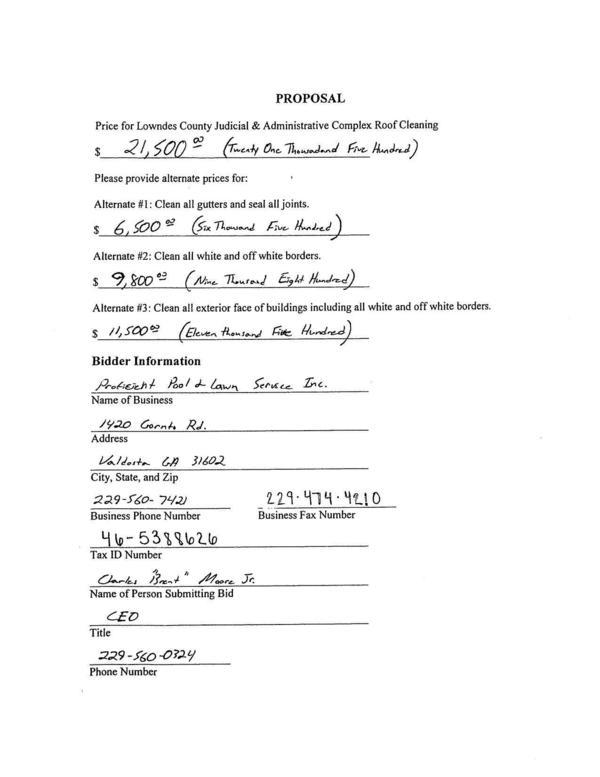 PROPOSAL
Price for Lowndes County Judicial & Administrative Complex Roof Cleaning
$ 21,500 00 (Twenty One Thousadand Five Hundred)
Please provide alternate prices for:
Alternate #1: Clean all gutters and seal all joints.
$ 6,500 00 (Six Thousand Five Hundred)
Alternate #2: Clean all white and off white borders.
$ 9,800 00 (Nine Thousand Eight Hundred)
Alternate #3: Clean all exterior face of buildings including all white and off white borders.
$ 11,500 00 (Eleven thousand Five Hundred)
Bidder Information
Pool & Lawn Service Inc.
Name of Business
1420 Rd.
Address
Valdosta GA 31602
City, State, and Zip
229-560-7421 229.474.4210
Business Phone Number Business Fax Number
46-5388626
Tax ID Number
Charles "Brent" Moore Jr.
Name of Person Submitting Bid
CEO
Title
229-560-0324
Phone Number